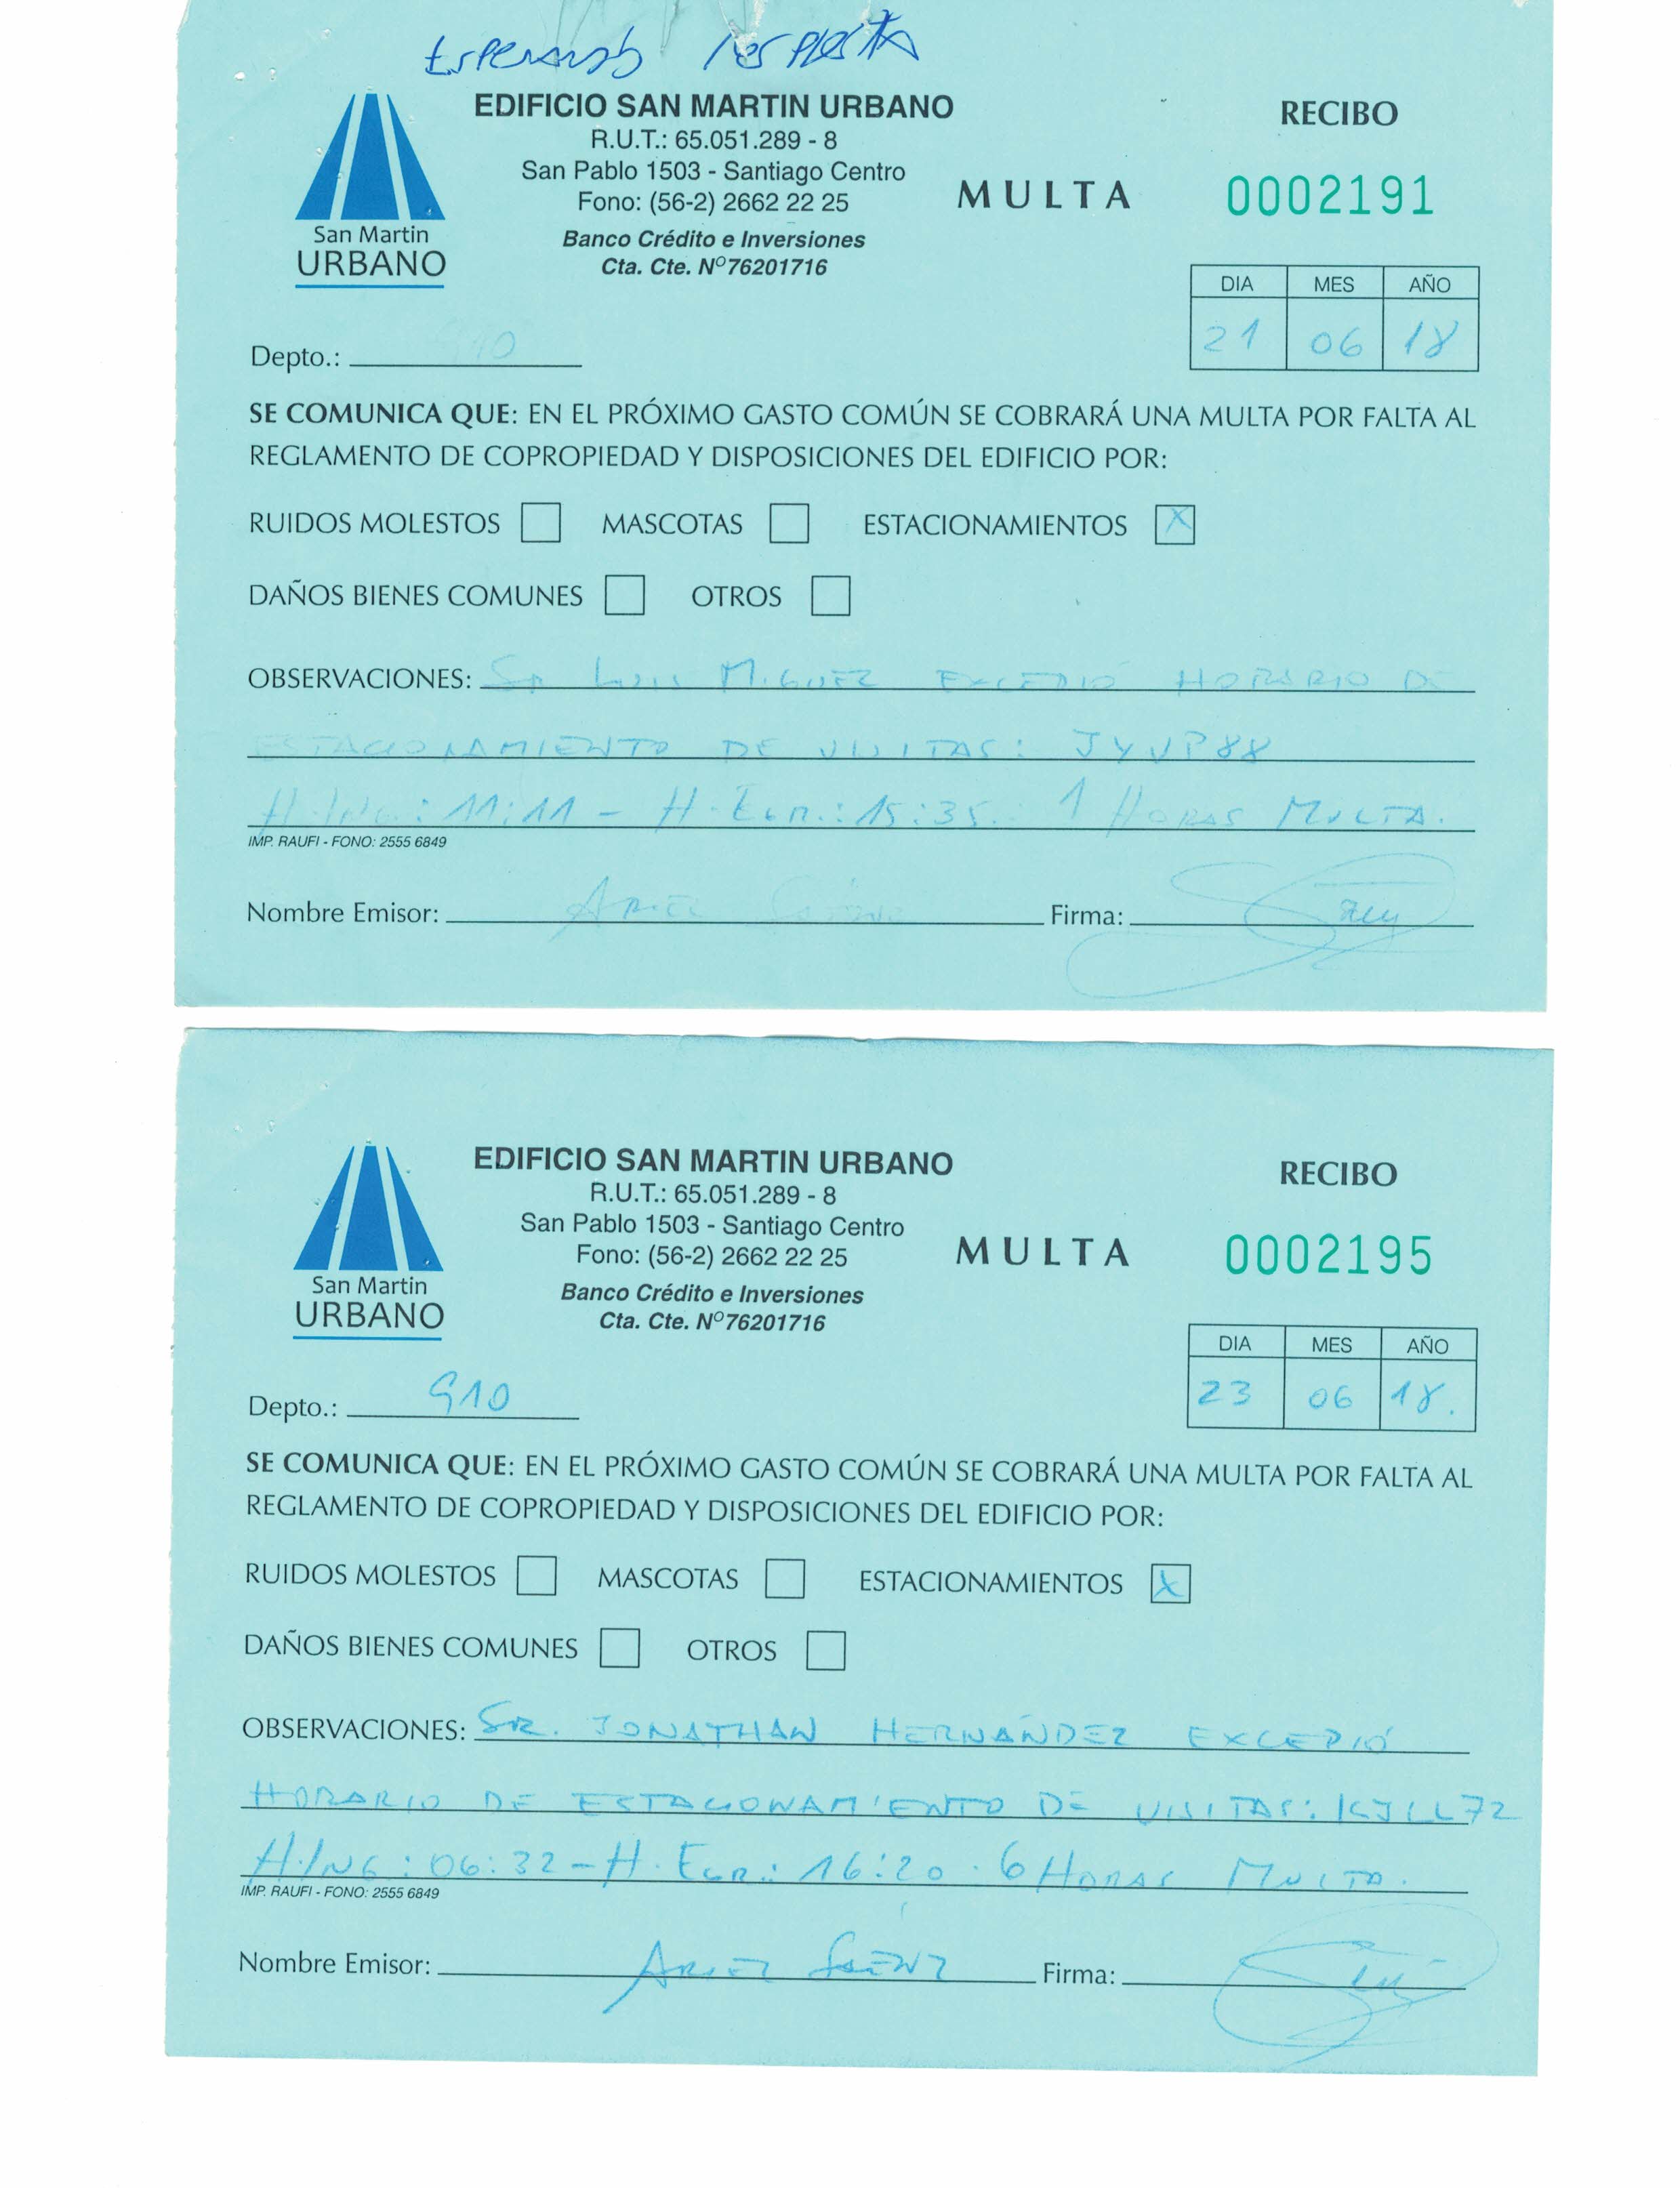 Esperando respuesta
EDIFICIO SAN MARTIN URBANO
R.U.T.: 65.051.289 - 8
San Pablo 1503 - Santiago Centro
Fono: (56-2) 2662 22 25
Banco Crédito e Inversiones
Cta. Cte. Nº76201716
San Martin
URBANO
MULTA
RECIBO
0002191
DIA MES AÑO
21 06 18
Depto.: 910
SE COMUNICA QUE: EN EL PRÓXIMO GASTO COMÚN SE COBRARÁ UNA MULTA POR FALTA AL
REGLAMENTO DE COPROPIEDAD Y DISPOSICIONES DEL EDIFICIO POR:
RUIDOS MOLESTOS MASCOTAS ESTACIONAMIENTOS X
DAÑOS BIENES COMUNES OTROS
OBSERVACIONES: Sr Luis Miguel EXCEDIÓ HORARIO DE
ESTACIONAMIENTO DE VISITAS: JYVP88
H.Ing.: 11:11 - H.Egr.: 15:35. 1 HORAS MULTA.
IMP. RAUFI - FONO: 2555 6849
Nombre Emisor: ARIEL Firma:
EDIFICIO SAN MARTIN URBANO
R.U.T.: 65.051.289 - 8
San Pablo 1503 - Santiago Centro
Fono: (56-2) 2662 22 25
Banco Crédito e Inversiones
Cta. Cte. Nº76201716
San Martin
URBANO
MULTA
RECIBO
0002195
DIA MES AÑO
23 06 18.
Depto.: 910
SE COMUNICA QUE: EN EL PRÓXIMO GASTO COMÚN SE COBRARÁ UNA MULTA POR FALTA AL
REGLAMENTO DE COPROPIEDAD Y DISPOSICIONES DEL EDIFICIO POR:
RUIDOS MOLESTOS MASCOTAS ESTACIONAMIENTOS X
DAÑOS BIENES COMUNES OTROS
OBSERVACIONES: SR. JONATHAN HERNÁNDEZ EXCEDIÓ
HORARIO DE ESTACIONAMIENTO DE VISITAS: KJLL72
H.ING: 06:32 - H.Egr.: 16:20. 6 HORAS MULTA.
IMP. RAUFI - FONO: 2555 6849
Nombre Emisor: ARIEL SÁENZ Firma: